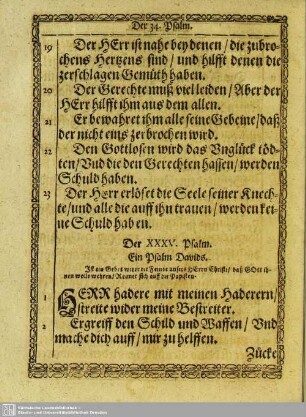 Der 34. Psalm.
19 Der HErr ist nahe bey denen / die zubro-
chens Hertzens sind / und hilfft denen die
zerschlagen Gemüth haben.
20 Der Gerechte muß viel leiden / Aber der
HErr hilfft ihm aus dem allen.
21 Er bewahret ihm alle seine Gebeine / daß
der nicht eins zerbrochen wird.
22 Den Gottlosen wird das Vnglück töd-
ten / Vnd die den Gerechten hassen / werden
Schuld haben.
23 Der Herr erlöset die Seele seiner Knech-
te / und alle die auff ihn trauen / werden kei-
ne Schuld haben.
Der XXXV. Psalm.
Ein Psalm Davids.
Ist ein Gebet wider die Feinde unsers HErrn Christi / daß GOtt ih-
nen wolle wehren / Reimet sich auff die Papisten.
1 HERR hadere mit meinen Haderern /
streite wider meine Bestreiter.
2 Ergreiff den Schild und Waffen / Vnd
mache dich auff / mir zu helffen.
Zücke